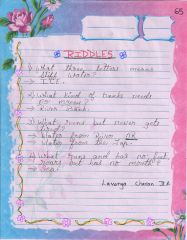 65
RIDDLES
1) What three letters means
stiff water?
→ ICE.
2) What kind of banks needs
no money?
→ River Banks.
3) What runs but never gets
tired?
→ Water from River OR
→ Water from the Tap.
4) What runs and has no feet,
roars but has no mouth?
→ Sea.
Lavanya Charan